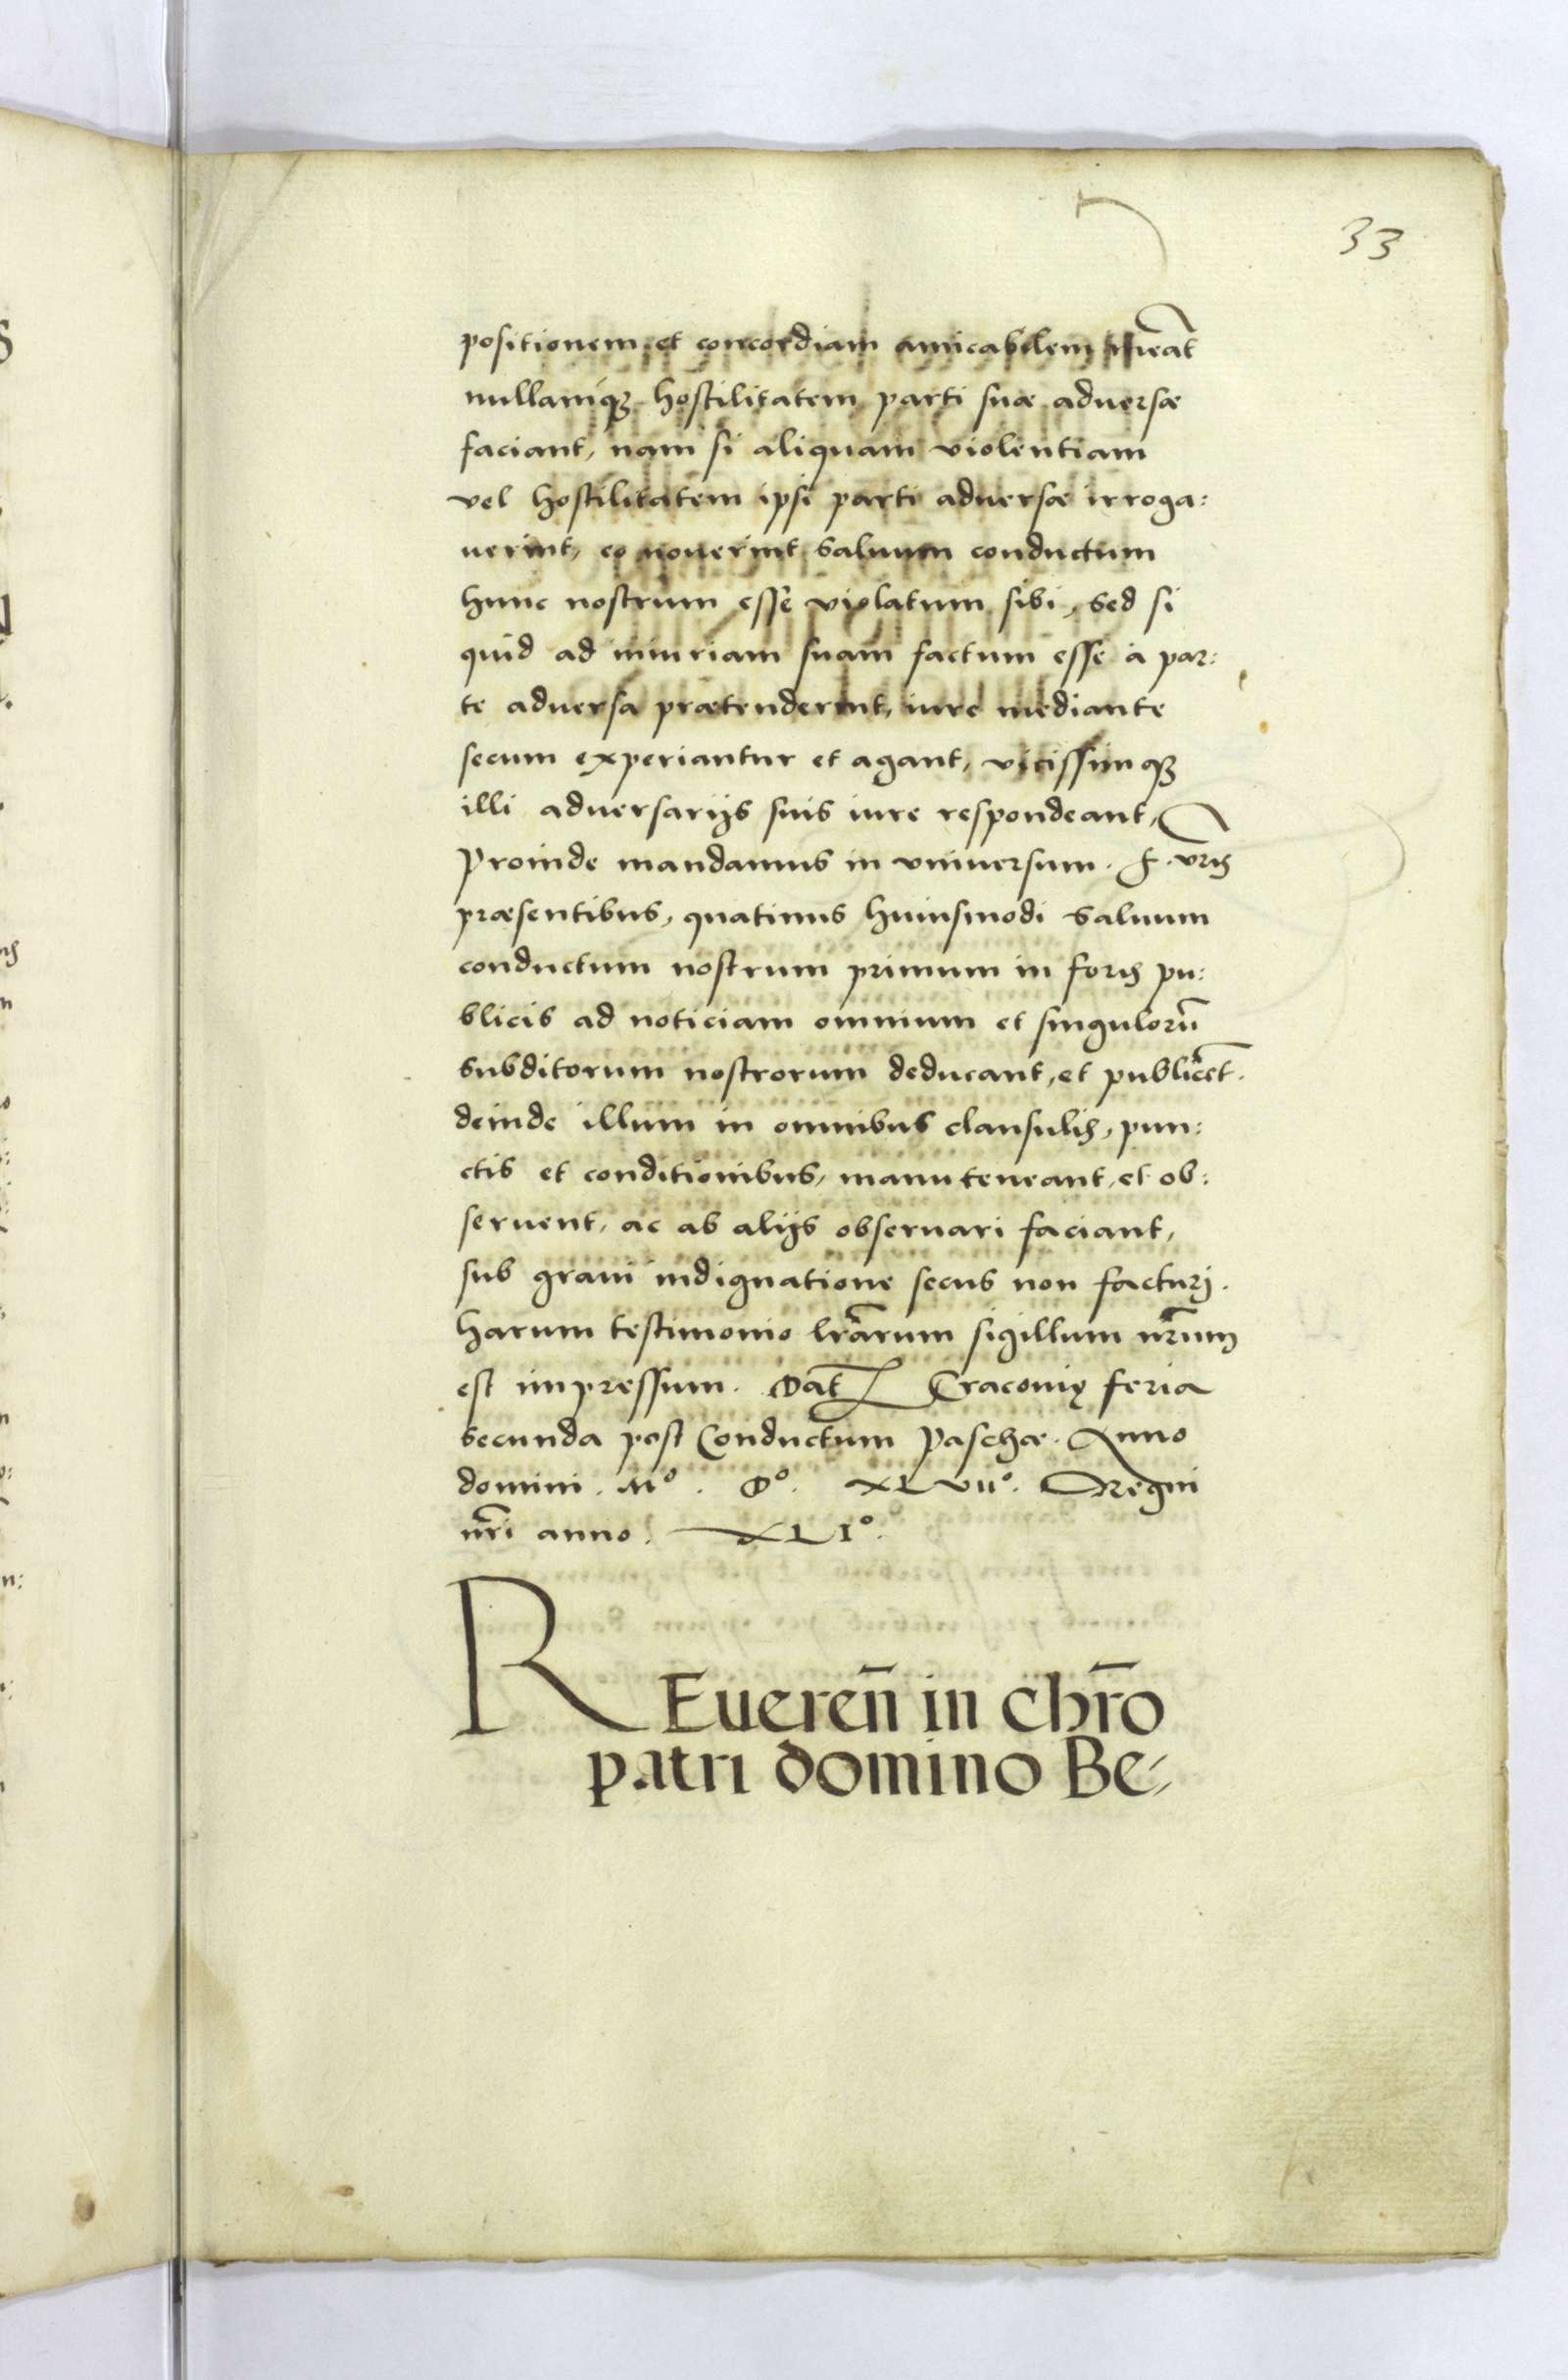 33
positionem et concordiam amicabilem ineāt
nullamq̃ hostilitatem parti suæ aduersæ
faciant, nam si aliquam violentiam
vel hostilitatem ipsi parti aduersæ irroga:
uerint, eo nouerint saluum conductum
hunc nostrum esse violatum sibi, sed si
quid ad iniuriam suam factum esse à par:
te aduersa prætenderint, iure mediante
secum experiantur et agant, vicissimq̃
illi aduersarijs suis iure respondeant,
Proinde mandamus in vniuersum. F. vris
præsentibus, quatinus huiusmodi saluum
conductum nostrum primum in foris pu:
blicis ad noticiam omnium et singulorū
subditorum nostrorum deducant, et publicēt.
deinde illum in omnibus clausulis, pun:
ctis et conditionibus, manuteneant, et ob:
seruent, ac ab alijs obseruari faciant,
sub graui indignatione secus non facturj.
harum testimonio lr̃arum sigillum nr̃um
est impressum. Dat̃ Cracouię feria
secunda post Conductum Paschæ. Anno
domini. Mº. Dº. XLVIIº. Regni
nr̃i anno. XLIº.
REueren̄ in chr̄o
patri domino Be⸗